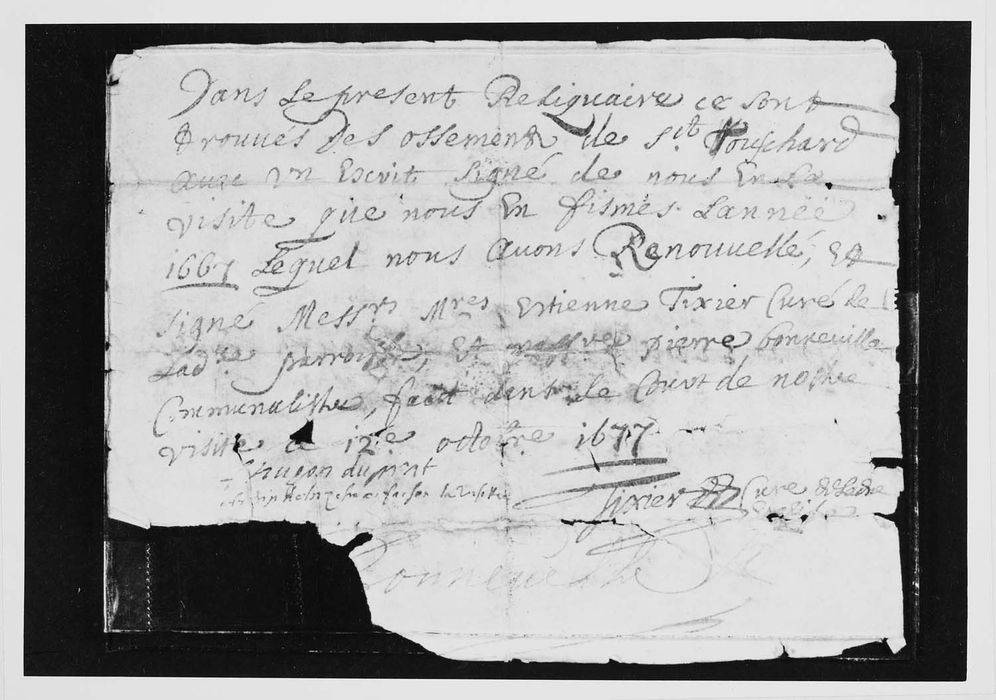 Dans Le present Reliquaire ce sont
trouvés Des ossements de St. Pouschard
avec un Escrit signé de nous En La
visite que nous En fismes Lannée
1667 Lequel nous avons Renouvellé, et
signé Messrs Mres Estienne Tixier Curé de
Lade parroisse, et pierre bonneville
Communaliste, faict dans le Court de nostre
visite ce 12e octobre 1677
dupont
Tixier Curé de Ladte
Eglise